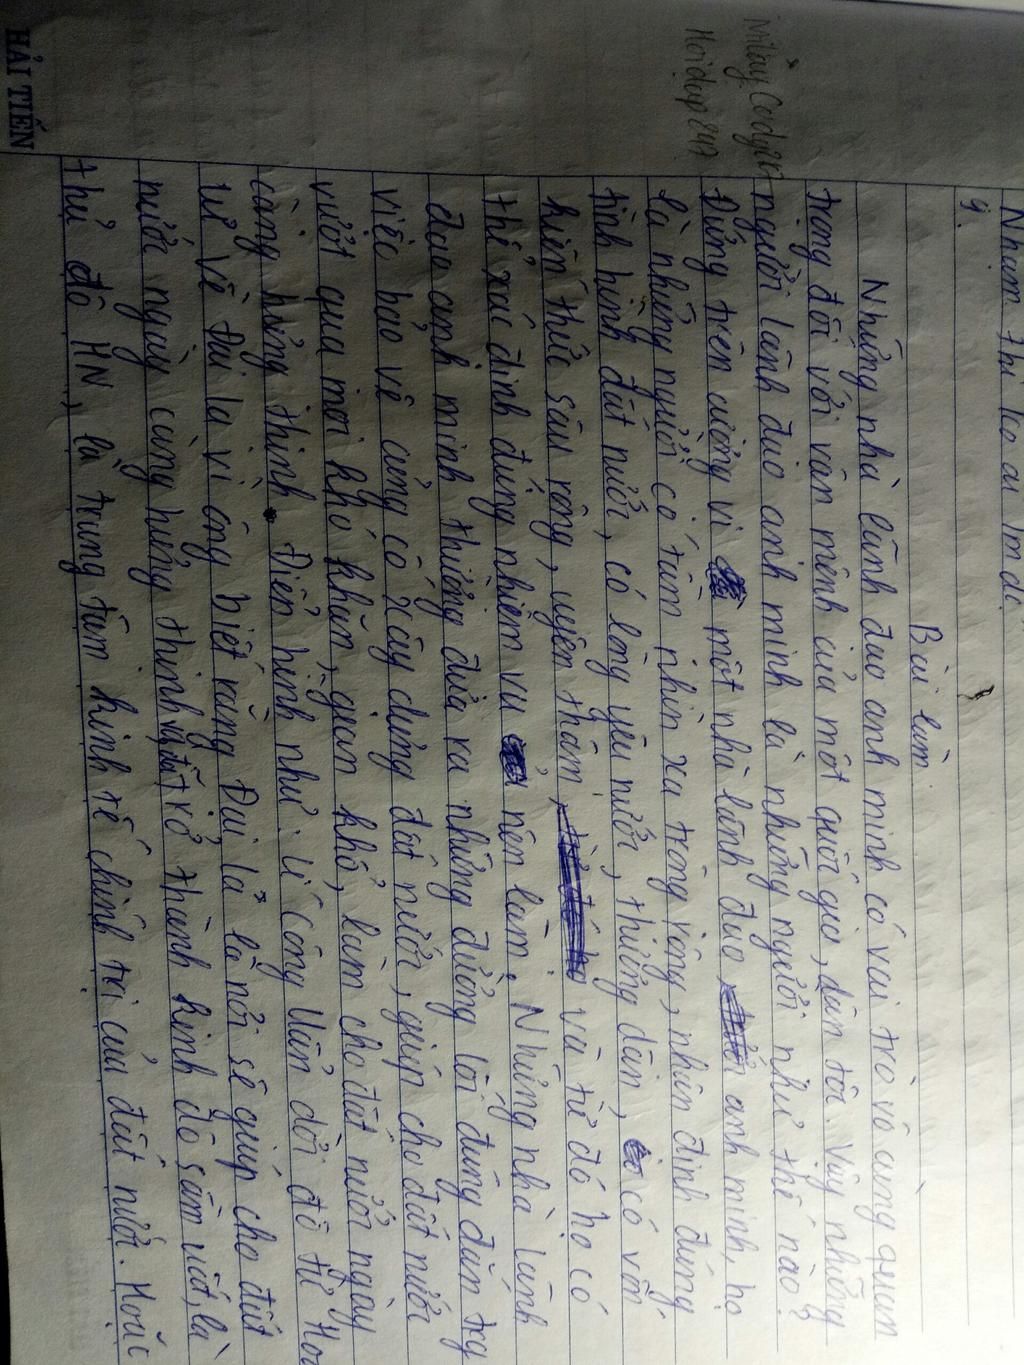 Nham thi
g.
Bài làm
Những nhà lãnh đạo anh minh có vai trò vô cùng quan
trọng đối với vận mệnh của một quốc gia, dân tộc. Vậy những
người lãnh đạo anh minh là những người như thế nào?
Đứng trên cương vị một nhà lãnh đạo anh minh, họ
là những người có tầm nhìn xa trông rộng, nhận định đúng
tình hình đất nước, có lòng yêu nước, thương dân, có vốn
kiến thức sâu rộng, uyên thâm và từ đó họ có
thể xác định đúng nhiệm vụ nên làm. Những nhà lãnh
đạo anh minh thường đưa ra những đường lối đúng đắn trg
việc bảo vệ củng cố xây dựng đất nước, giúp cho đất nước
vượt qua mọi khó khăn, gian khổ, làm cho đất nước ngày
càng hưng thịnh. Điển hình như: Lí Công Uẩn dời đô từ Hoa
Lư về Đại la vì ông biết rằng Đại la là nơi sẽ giúp cho đất
nước ngày càng hưng thịnh, trở thành kinh đô sầm uất, là
thủ đô HN, là trung tâm kinh tế chính trị của đất nước. Hoặc
Hỏi đáp 247
HẢI TIẾN